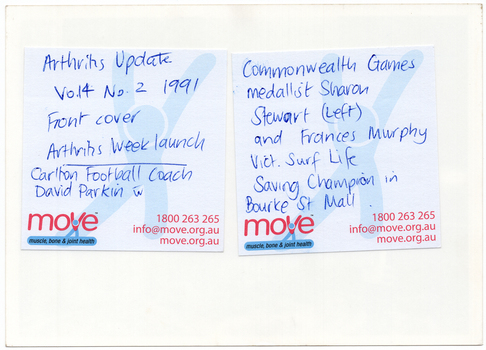 Arthritis Update
Vol 4 No. 2 1991
Front cover
Arthritis Week launch
Carlton Football Coach
David Parkin w
move
muscle, bone & joint health
1800 263 265
info@move.org.au
move.org.au
Commonwealth Games
medallist Sharon
Stewart (Left)
and Frances Murphy
Vict. Surf Life
Saving Champion in
Bourke St Mall.
move
muscle, bone & joint health
1800 263 265
info@move.org.au
move.org.au